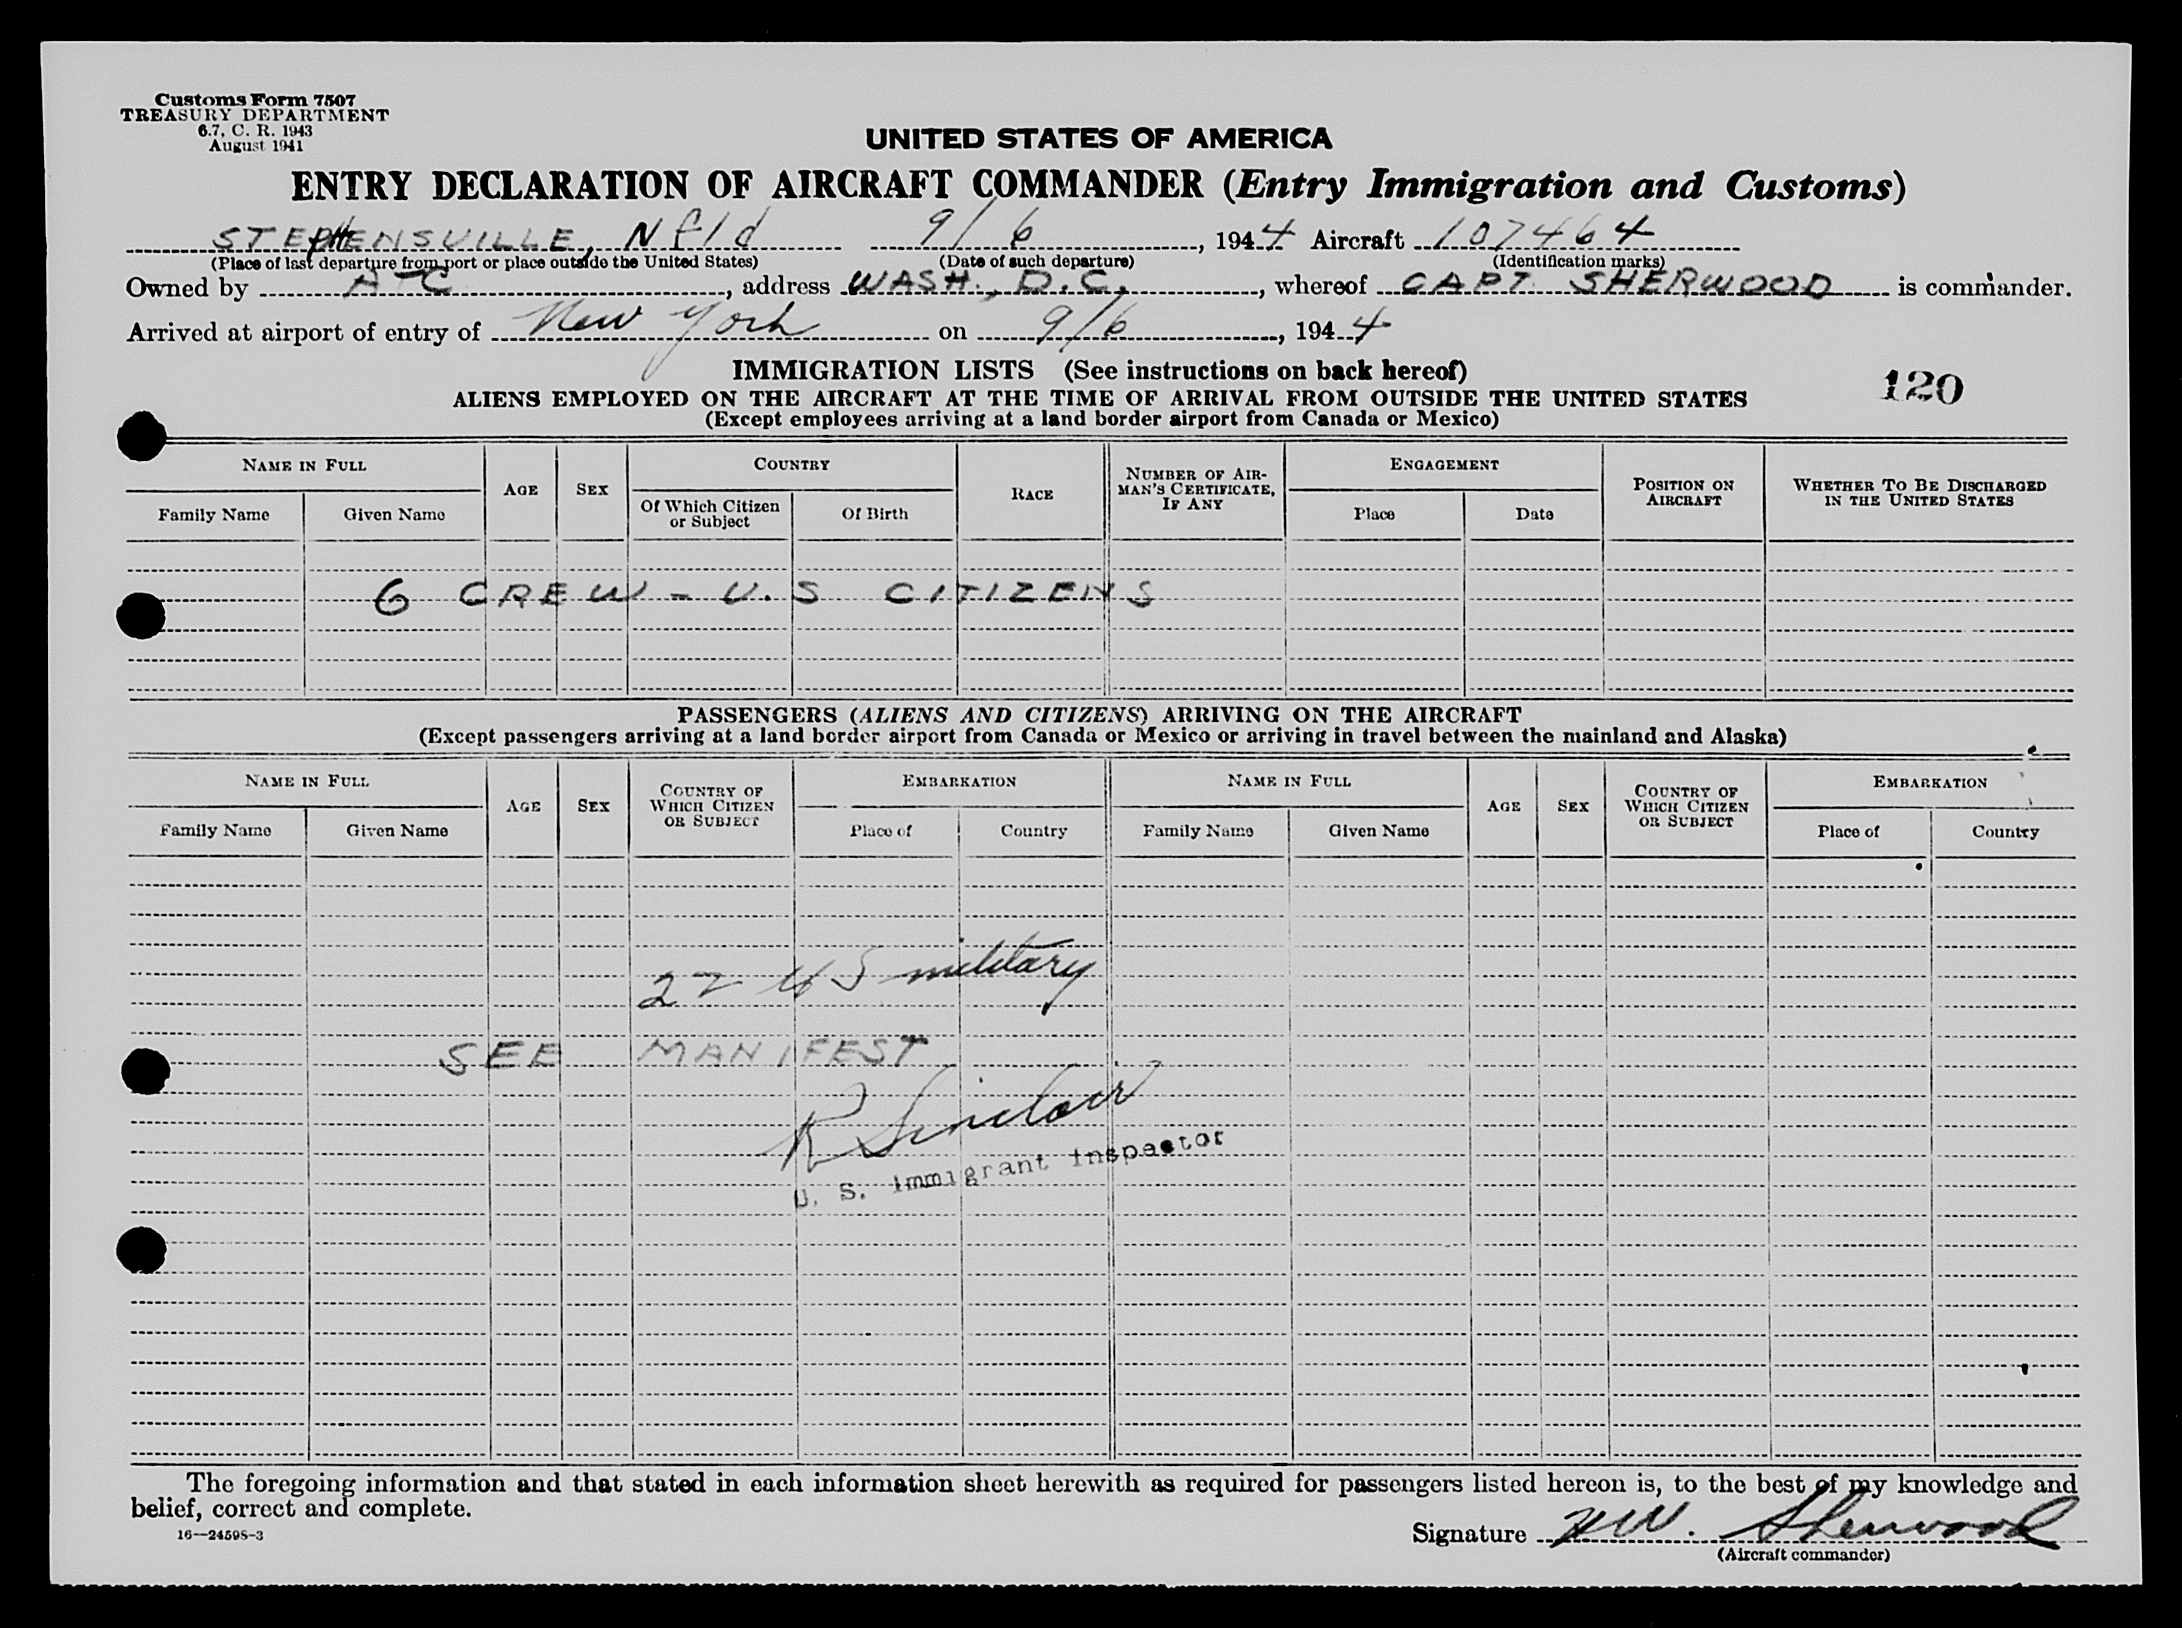 Customs Form 7507
TREASURY DEPARTMENT
6.7, C. R. 1943
August 1941
UNITED STATES OF AMERICA
ENTRY DECLARATION OF AIRCRAFT COMMANDER (Entry Immigration and Customs)
STEPHENSVILLE, Nfld 9/6, 1944 Aircraft 107464
(Place of last departure from port or place outside the United States) (Date of such departure) (Identification marks)
Owned by ATC, address WASH., D.C., whereof CAPT. SHERWOOD is commander.
Arrived at airport of entry of New York on 9/6, 1944
IMMIGRATION LISTS (See instructions on back hereof)
120
ALIENS EMPLOYED ON THE AIRCRAFT AT THE TIME OF ARRIVAL FROM OUTSIDE THE UNITED STATES
(Except employees arriving at a land border airport from Canada or Mexico)
NAME IN FULL AGE SEX COUNTRY RACE NUMBER OF AIRMAN'S CERTIFICATE, IF ANY ENGAGEMENT POSITION ON AIRCRAFT WHETHER TO BE DISCHARGED IN THE UNITED STATES
Family Name Given Name Of Which Citizen or Subject Of Birth Place Date
6 CREW - U.S CITIZENS
PASSENGERS (ALIENS AND CITIZENS) ARRIVING ON THE AIRCRAFT
(Except passengers arriving at a land border airport from Canada or Mexico or arriving in travel between the mainland and Alaska)
NAME IN FULL AGE SEX COUNTRY OF WHICH CITIZEN OR SUBJECT EMBARKATION NAME IN FULL AGE SEX COUNTRY OF WHICH CITIZEN OR SUBJECT EMBARKATION
Family Name Given Name Place of Country Family Name Given Name Place of Country
22 US military
SEE MANIFEST
R Sinclair
U. S. Immigrant Inspector
The foregoing information and that stated in each information sheet herewith as required for passengers listed hereon is, to the best of my knowledge and
belief, correct and complete.
16—24598-3
Signature HW. Sherwood
(Aircraft commander)